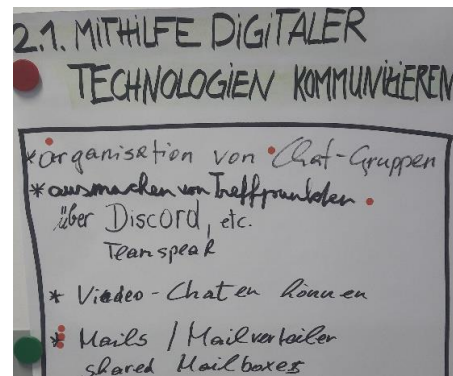 2.1. MITHILFE DIGITALER
TECHNOLOGIEN KOMMUNIZIEREN
* Organisation von Chat-Gruppen
* ausmachen von Treffpunkten
über Discord, etc.
Teamspeak
* Viedeo-Chaten können
* Mails / Mailverteiler
shared Mailboxes